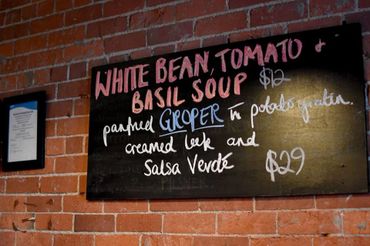 WHITE BEAN, TOMATO &
BASIL SOUP $12
panfried GROPER w potato gratin.
creamed leek and
Salsa Verdé $29